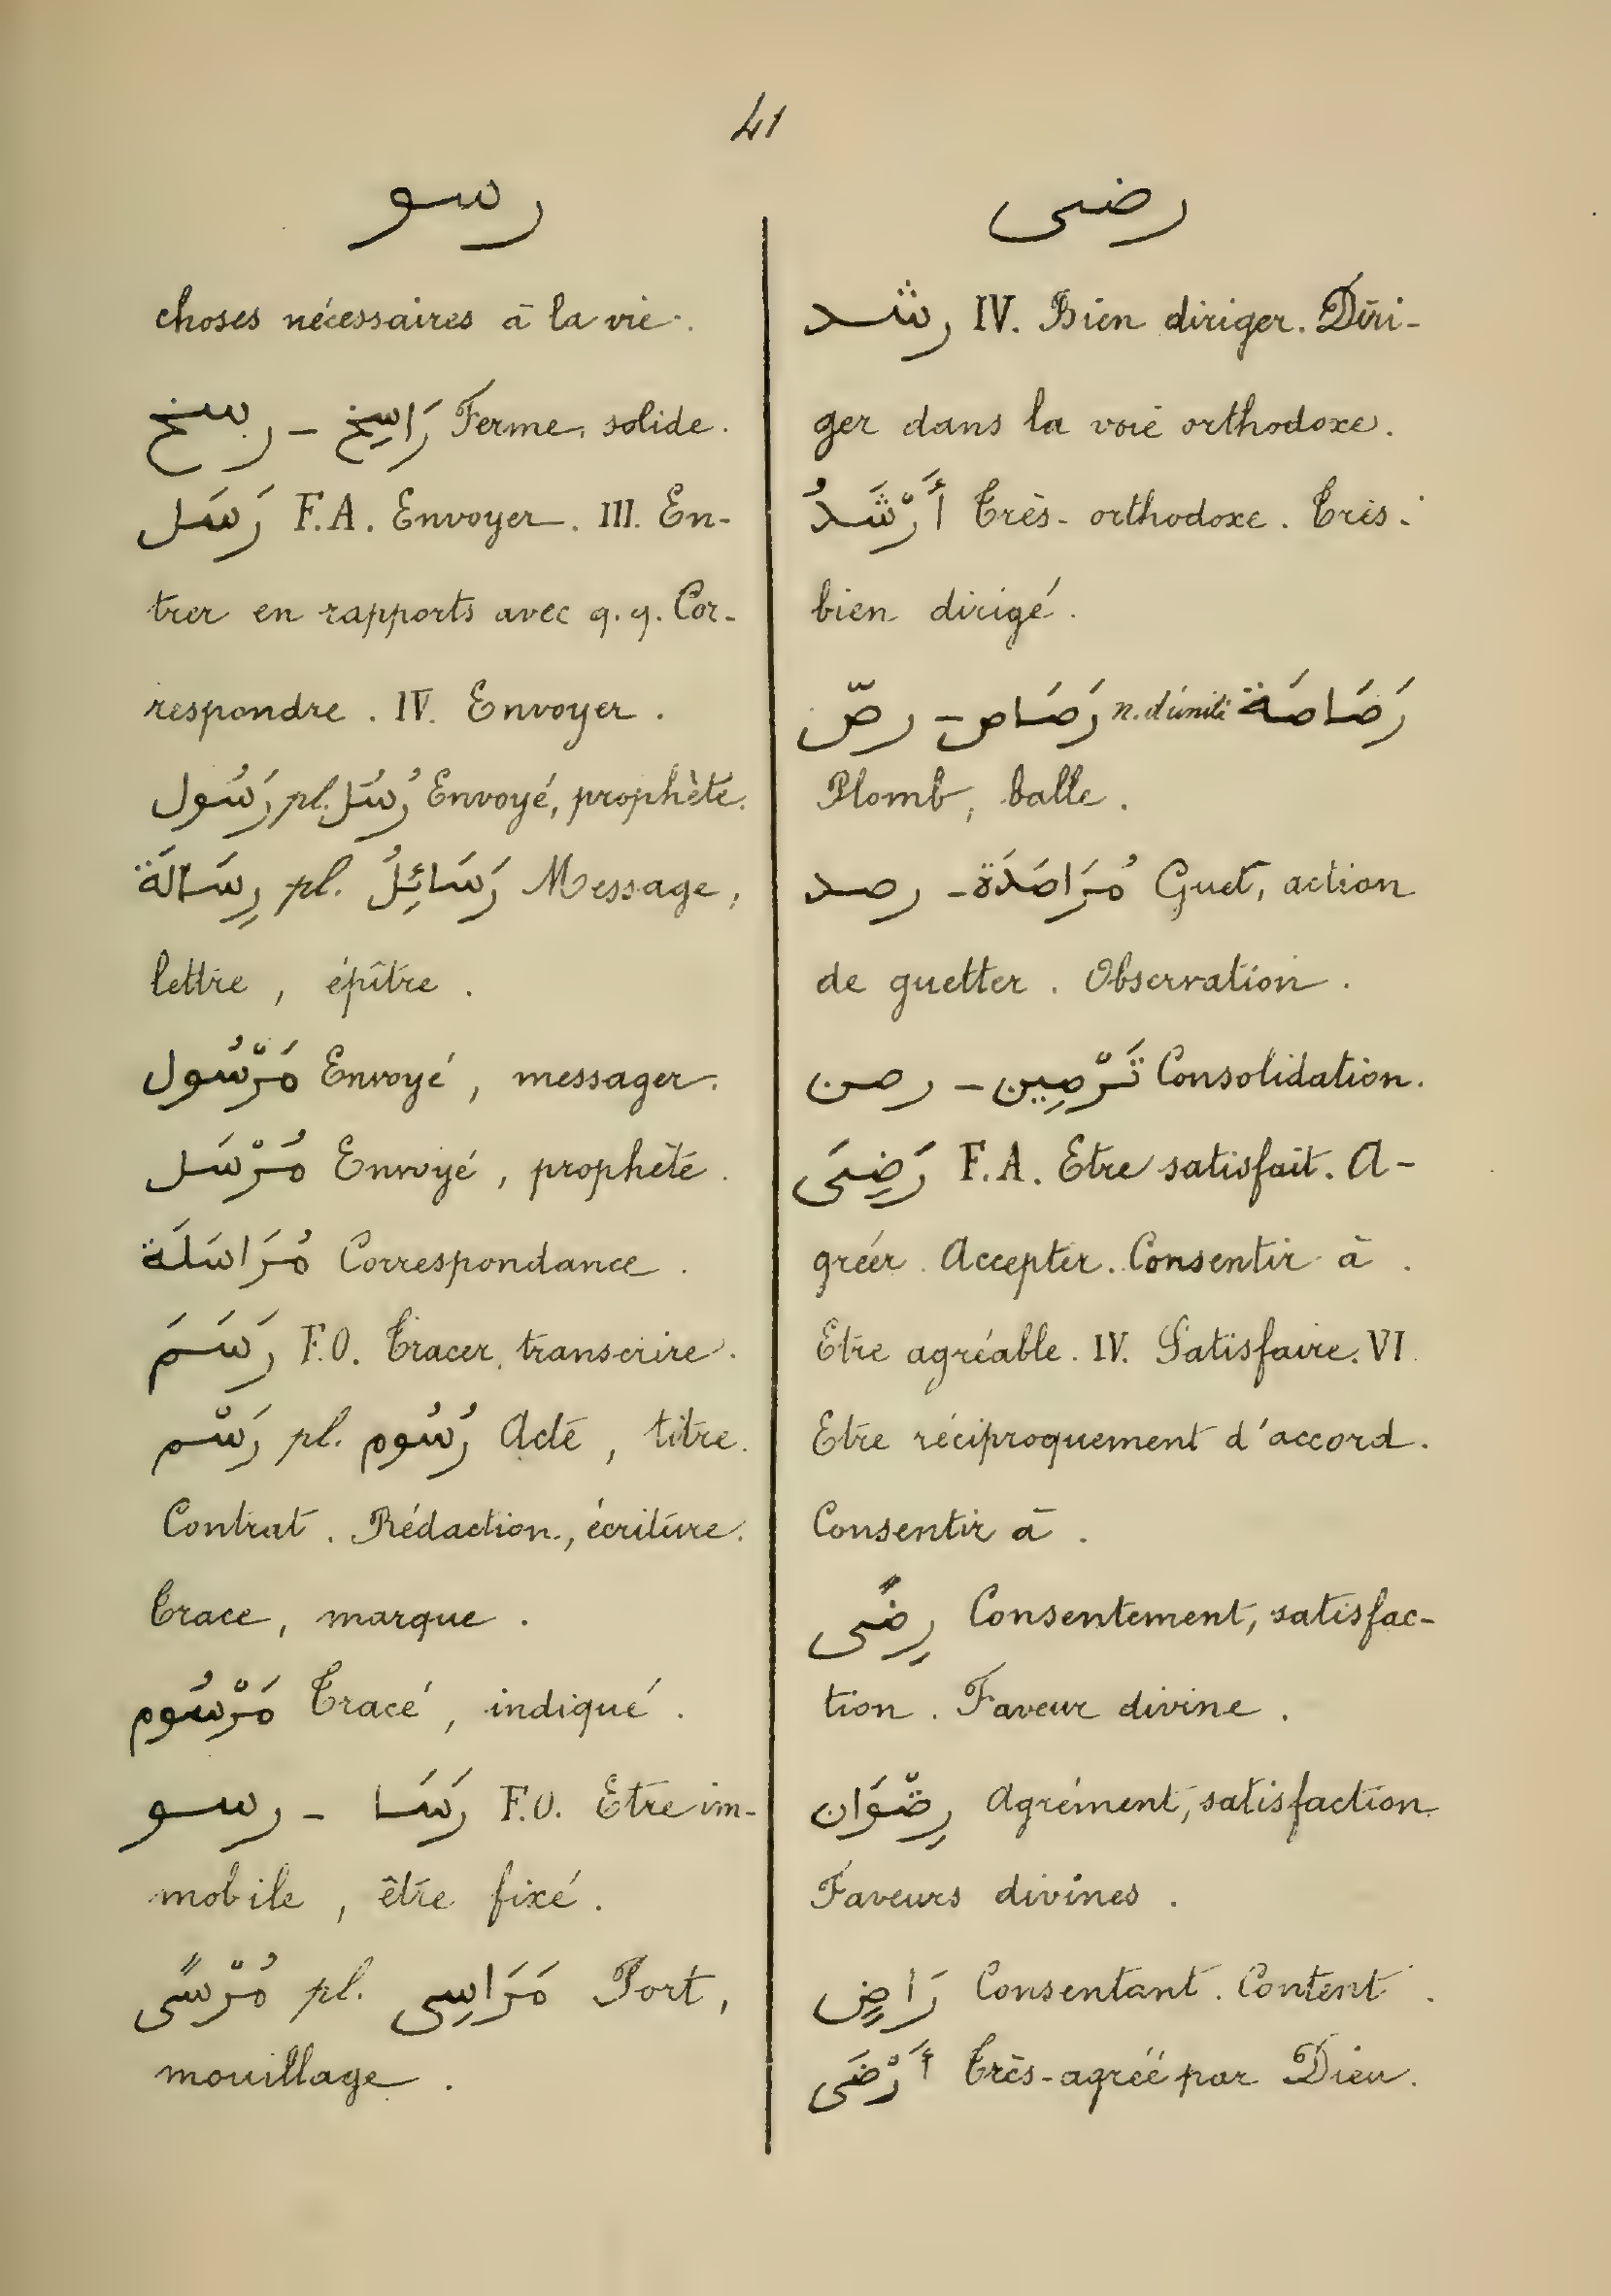 41
رسو
choses nécessaires à la vie.
رسخ - رَاسِخ Ferme, solide.
رَسَل F.A. Envoyer. III. En-
trer en rapports avec q.q. Cor-
respondre. IV. Envoyer.
رَسُول pl. رُسُل Envoyé, prophète.
رِسَالَة pl. رَسَائِلُ Message,
lettre, épître.
مَرْسُول Envoyé, messager.
مُرْسَل Envoyé, prophète.
مُرَاسَلَة Correspondance.
رَسَمَ F.O. Tracer, transcrire.
رَسْم pl. رُسُوم Acte, titre.
Contrat. Rédaction, écriture.
Trace, marque.
مَرْسُوم Tracé, indiqué.
رسو - رَسَا F.O. Etre im-
mobile, être fixé.
مُرْسًى pl. مَرَاسِى Port,
mouillage.
رضى
رشد IV. Bien diriger. Diri-
ger dans la voie orthodoxe.
أَرْشَدُ Très-orthodoxe. Très-
bien dirigé.
رصّ - رَصَاص n. d'unité رَصَاصَة
Plomb, balle.
رصد - مُرَاصَدَة Guet, action
de guetter. Observation.
رصن - تَرْصِين Consolidation.
رَضِىَ F.A. Etre satisfait. A-
gréer. Accepter. Consentir à.
Etre agréable. IV. Satisfaire. VI.
Etre réciproquement d'accord.
Consentir à.
رِضًى Consentement, satisfac-
tion. Faveur divine.
رِضْوَان Agrément, satisfaction
Faveurs divines.
رَاضٍ Consentant. Content.
أَرْضَى Très-agréé par Dieu.